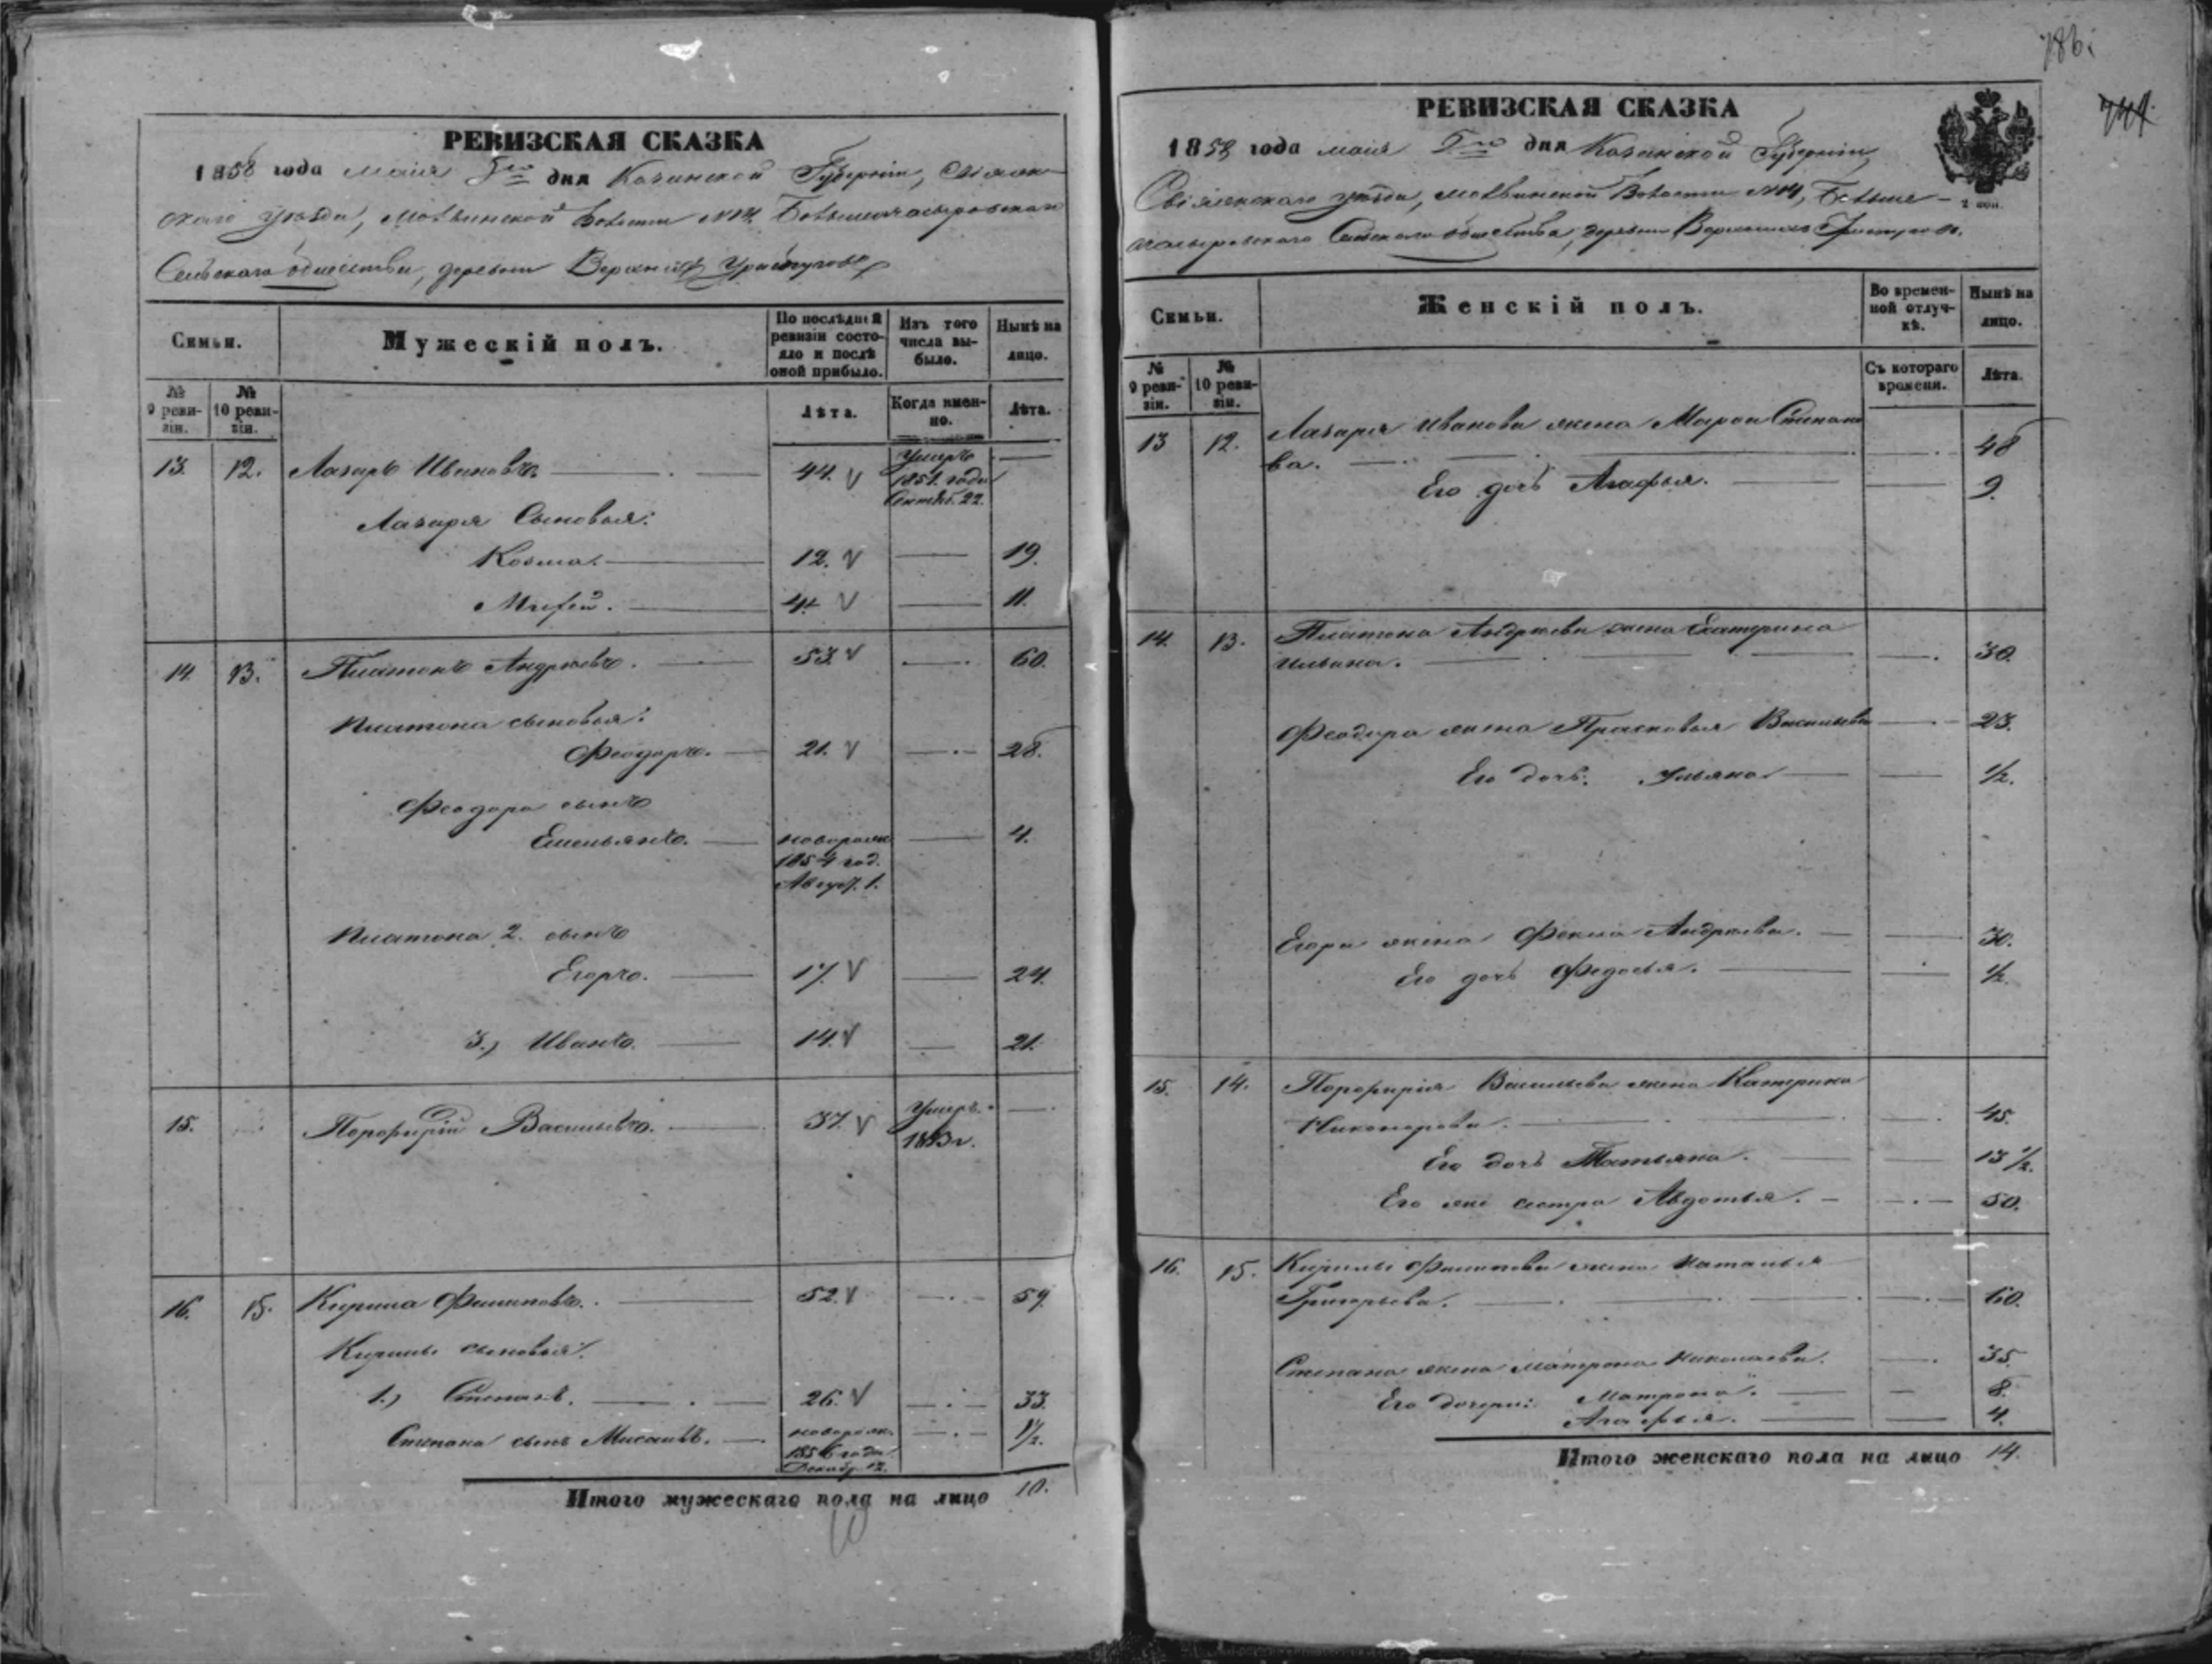 786.
РЕВИЗСКАЯ СКАЗКА
1858 года маія 5го дня Казанской Губерніи, Свіяж-
скаго уѣзда, Молвинской Волости №14. Больше
Сельскаго общества, деревни Верхний
Семьи.
Мужескій полъ.
По послѣдней ревизіи состояло и послѣ оной прибыло.
Изъ того числа выбыло.
Нынѣ на лицо.
№ 9 ревизіи.
№ 10 ревизіи.
Лѣта.
Когда именно.
Лѣта.
13. 12. Лазарь Ивановъ. 44. Умеръ 185 года Сентяб. 22.
Лазаря Сыновья:
Козма. 12. 19.
4. 11.
14. 13. Платонъ Андреевъ. 53. 60.
Платона сыновья:
Феодоръ. 21. 28.
Феодора сынъ
Емельянъ. новорож. 1854 год. Август. 1. 4.
Платона 2. сынъ
Егоръ. 17. 24.
3.) Иванъ. 14. 21.
15. Порфирій Васильевъ. 37. Умеръ. 1853 г.
16. 15. Кирила Филиповъ. 52. 59.
Кирилы сыновья:
1.) Степанъ. 26. 33.
Степана сынъ Михаилъ. новорож. 1856 года Декабр. 12. 1½.
Итого мужескаго пола на лицо 10.
10
РЕВИЗСКАЯ СКАЗКА
1858 года маія 5го дня Казанской Губерніи,
Свіяжскаго уѣзда, Молвинской Волости №14, Больше-
Сельскаго общества, деревни Верхнихъ
2 коп.
Семьи.
Женскій полъ.
Во временной отлучкѣ.
Нынѣ на лицо.
№ 9 ревизіи.
№ 10 ревизіи.
Съ котораго времени.
Лѣта.
13 12. Лазаря Иванова жена Марья Степано
ва. 48
Его дочь Агафья. 9.
14. 13. Платона Андреева жена Екатерина
Ильина. 30.
Феодора жена Прасковья Васильева 23.
Его дочь: Ульяна ½.
Егора жена Фекла Андреева. 30.
Его дочь Федосья. ½.
15. 14. Порфирия Васильева жена Катерина
Никонорова. 45.
Его дочь Татьяна. 13½.
Его же сестра Авдотья. 50.
16. 15. Кирилы Филипова жена Наталья
Григорьева. 60.
Степана жена Матрена Николаева. 35.
Его дочери: Матрена. 8.
Агафья. 4.
Итого женскаго пола на лицо 14.